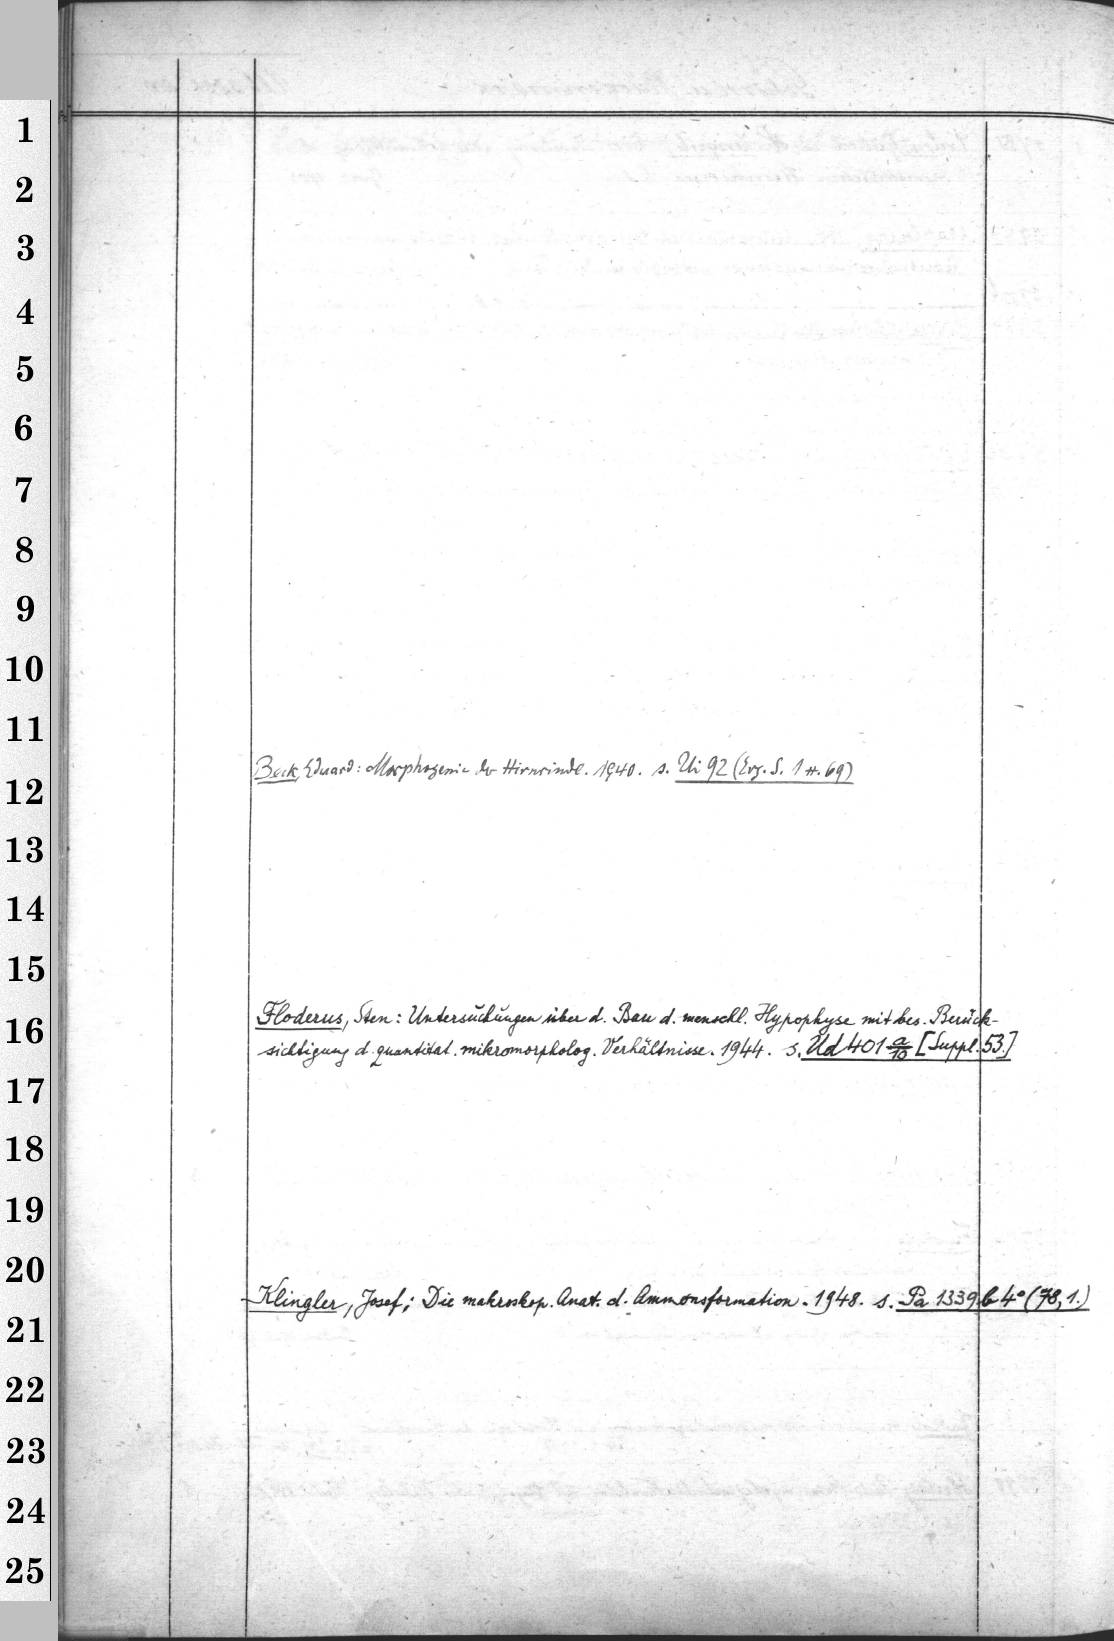 1
2
3
4
5
6
7
8
9
10
11
Beck, Eduard: Morphogenie der Hirnrinde. 1940. s. Ui 92 (Erg. S. 1 H. 69)
12
13
14
15
Floderus, Sten: Untersuchungen über d. Bau d. menschl. Hypophyse mit bes. Berück-
16
sichtigung d. quantitat. mikromorpholog. Verhältnisse. 1944. s. Ud 401 a/10 [Suppl. 53.]
17
18
19
20
Klingler, Josef; Die makroskop. Anat. d. Ammonsformation. 1948. s. Pa 1339 b 4° (78, 1.)
21
22
23
24
25